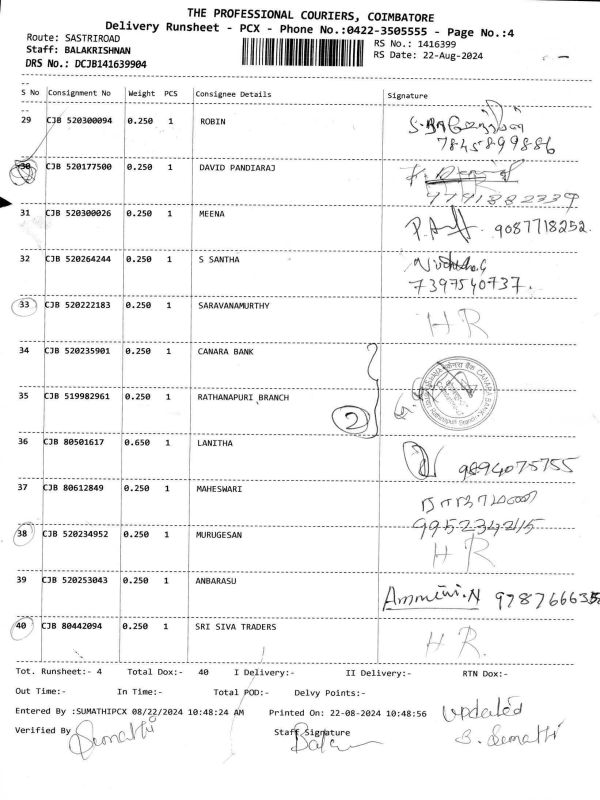 THE PROFESSIONAL COURIERS, COIMBATORE
Delivery Runsheet - PCX - Phone No.:0422-3505555 - Page No.:4
Route: SASTRIROAD
RS No.: 1416399
Staff: BALAKRISHNAN
RS Date: 22-Aug-2024
DRS No.: DCJB141639904
S No Consignment No Weight PCS Consignee Details Signature
29 CJB 520300094 0.250 1 ROBIN
7845899886
30 CJB 520177500 0.250 1 DAVID PANDIARAJ
HR
9791882239
31 CJB 520300026 0.250 1 MEENA
9087718252.
32 CJB 520264244 0.250 1 S SANTHA
7397540737.
33 CJB 520222183 0.250 1 SARAVANAMURTHY HR
34 CJB 520235901 0.250 1 CANARA BANK
CANARA BANK
35 CJB 519982961 0.250 1 RATHANAPURI BRANCH
2
36 CJB 80501617 0.650 1 LANITHA 9894075755
37 CJB 80612849 0.250 1 MAHESWARI
9952342115
38 CJB 520234952 0.250 1 MURUGESAN HR
39 CJB 520253043 0.250 1 ANBARASU
40 CJB 80442094 0.250 1 SRI SIVA TRADERS HR.
Tot. Runsheet:- 4 Total Dox:- 40 I Delivery:- II Delivery:- RTN Dox:-
Out Time:- In Time:- Total POD:- Delvy Points:-
Entered By :SUMATHIPCX 08/22/2024 10:48:24 AM Printed On: 22-08-2024 10:48:56
updated
Verified By Sumathi Staff Signature
S. Sumathi